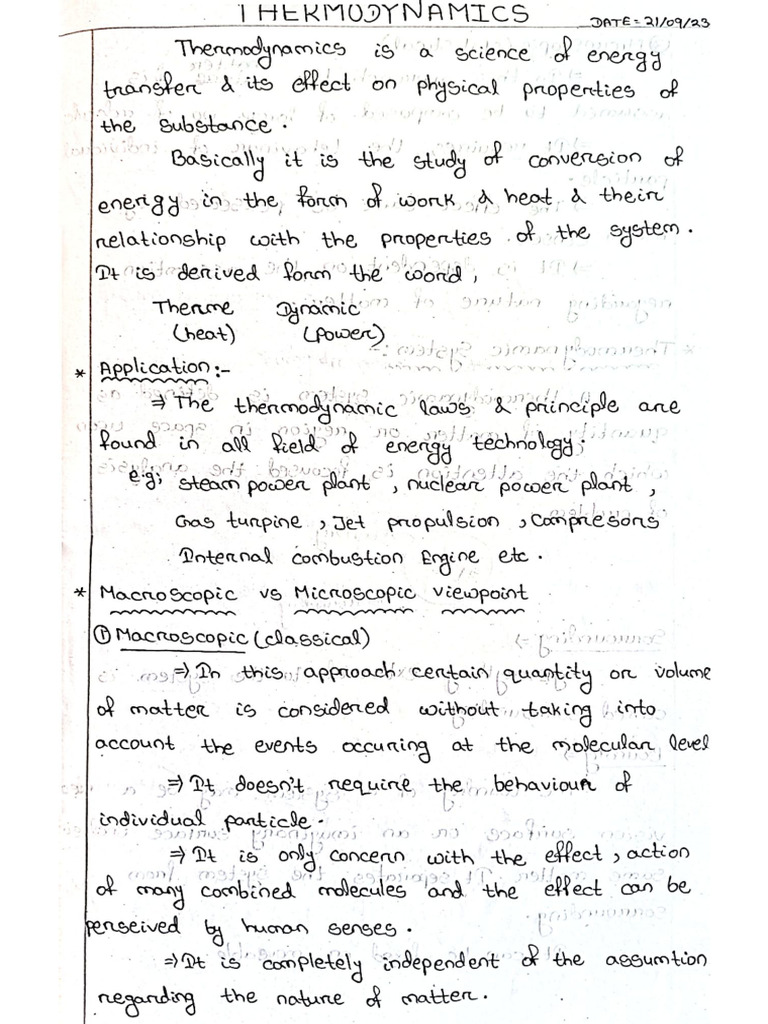 THERMODYNAMICS
DATE = 21/09/23
Thermodynamics is a science of energy
transfer & its effect on physical properties of
the substance.
Basically it is the study of conversion of
energy in the form of work & heat & their
relationship with the properties of the system.
It is derived form the word,
Therme Dynamic
(heat) (power)
* Application :-
⇒ The thermodynamic laws & principle are
found in all field of energy technology;
e.g; steam power plant , nuclear power plant ,
Gas turpine , Jet propulsion , Conpresors
Internal combustion Engine etc .
* Macroscopic vs Microscopic viewpoint
① Macroscopic (classical)
⇒ In this approach certain quantity or volume
of matter is considered without taking into
account the events occuring at the molecular level
⇒ It doesn't require the behaviour of
individual particle.
⇒ It is only concern with the effect , action
of many combined molecules and the effect can be
perseived by human senses .
⇒ It is completely independent of the assumtion
regarding the nature of matter .